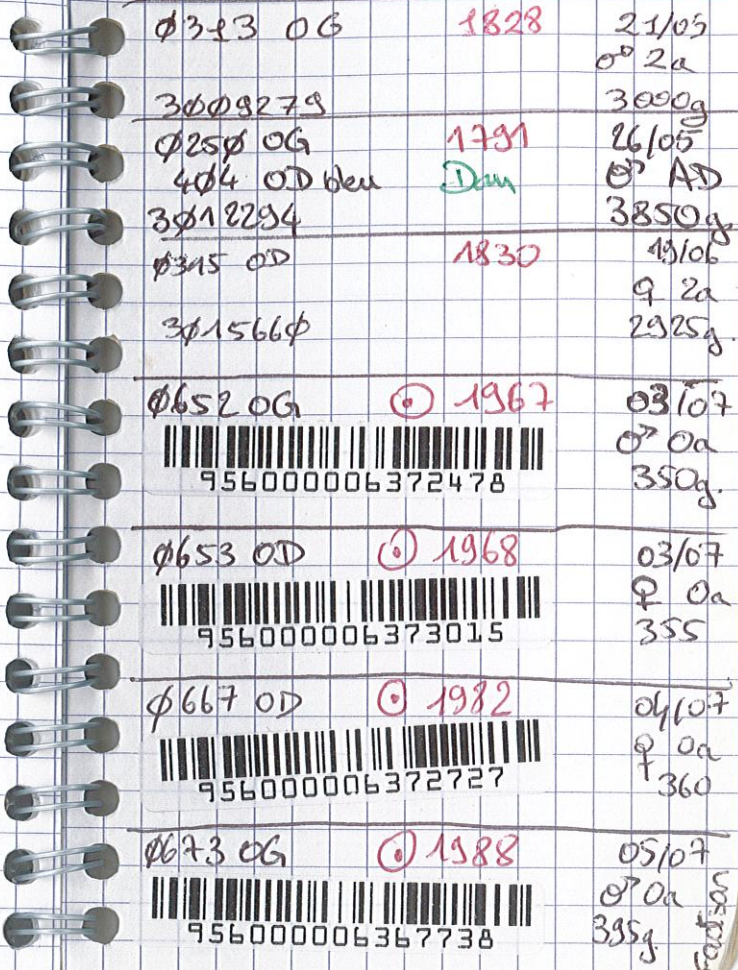 Ø313 OG 1828 21/05
♂ 2a
3ØØ9279 3000g
Ø25Ø OG 1791 26/05
4Ø4 OD bleu Dan ♂ AD
3Ø12294 3850g.
Ø315 OD 1830 19/06
♀ 2a
3Ø1566Ø 2925g.
Ø652 OG ⊙ 1967 03/07
♂ 0a
956000006372478 350g.
Ø653 OD ⊙ 1968 03/07
♀ 0a
956000006373015 355
Ø667 OD ⊙ 1982 04/07
♀ 0a
956000006372727 360
Ø673 OG ⊙ 1988 05/07
♂ 0a
956000006367738 395g.